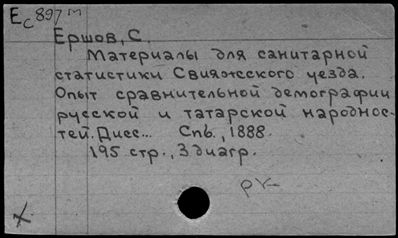 Ec 897 м
Ершов, С.
Материалы для санитарной
статистики Свияжсского уезда.
Опыт сравнительной демографии
русской и татарской народнос-
тей. Дисс... Спб., 1888.
195 стр., 3 диагр.